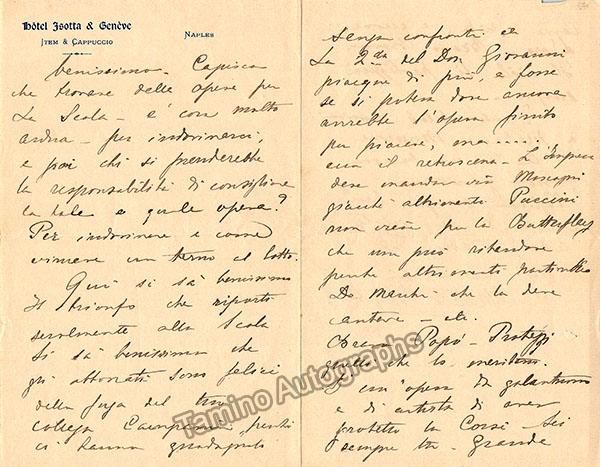 Hôtel Isotta & Genève
Item & Cappuccio
Naples
benissimo. Capisco
che trovare delle opere per
La Scala - è cosa molto
ardua - per indovinarci,
e poi chi si prenderebbe
la responsabilità di consigliare
la tale o quale opera?
Per indovinare è come
vincere un terno al lotto.
Qui si sà benissimo
Il trionfo che riporti
seralmente alla Scala
Si sà benissimo che
gli abbonati sono felici
della fuga del tuo
collega Campanini, perchè
ci hanno guadagnato
senza confronti etc
La 2da del Don Giovanni
piacque di più e forse
se si poteva dare ancora
avrebbe l'opera finito
per piacere, ma.....
è il retroscena - L'Impresa
deve mandar via Mascagni
giacchè altrimenti Puccini
non viene per la Butterfly
che non può ritardare
perchè altrimenti partirebbe
De Marchi che la deve
cantare - etc.
Bravo Popò - Proteggi
quello che lo meritano.
È un' opera da galantuomo
e di artista di aver
protetto la Corsi Sei
sempre un Grande
Tamino Autographs